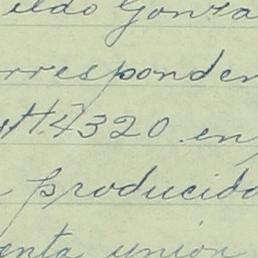 ildo Gonza
rresponden
4320 en
producido
enta unión